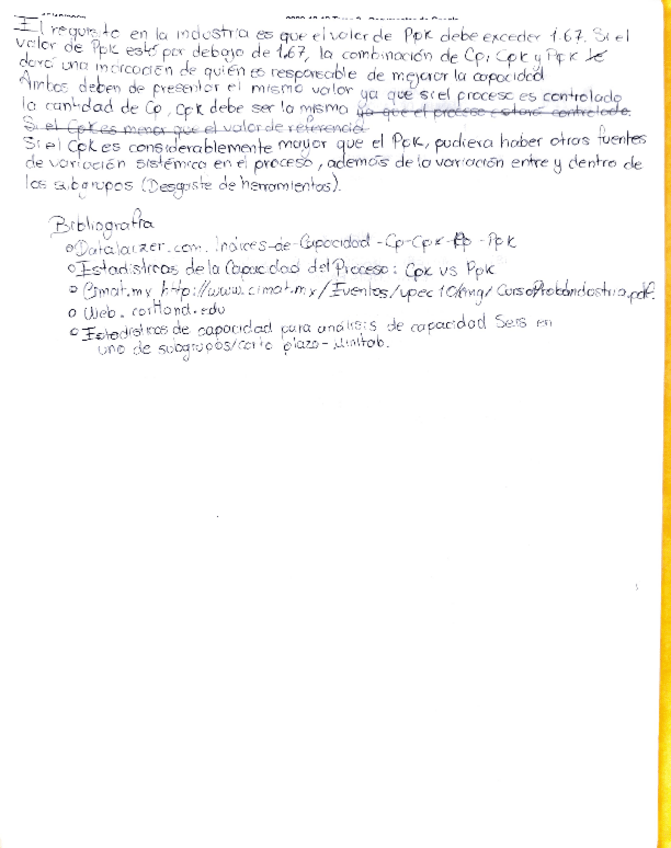 El requisito en la industria es que el valor de Ppk debe exceder 1.67. Si el
valor de Ppk está por debajo de 1.67, la combinación de Cp, Cpk y Ppk le
dará una indicación de quién es responsable de mejorar la capacidad
Ambos deben de presentar el mismo valor ya que si el proceso es controlado
la cantidad de Cp, Cpk debe ser la misma ya que el proceso estará controlado.
Si el Cpk es menor que el valor de referencia
Si el Cpk es considerablemente mayor que el PpK, pudiera haber otras fuentes
de variación sistémica en el proceso, además de la variación entre y dentro de
los subgrupos (Desgaste de herramientas).
Bibliografía
Datalaizer.com. índices-de-Capacidad-Cp-Cpk-Pp-PpK
Estadísticas de la Capacidad del Proceso: Cpk vs Ppk
Cimat.mx http://www.cimat.mx/Eventos/vpec10/img/
Web. cortland.edu
Estadísticas de capacidad para análisis de capacidad en
uno de subgrupos/corto plazo - Minitab.